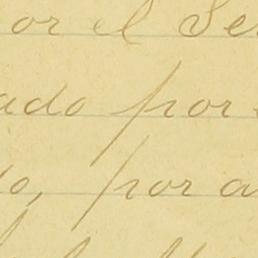 or el Se
ado por
o, por a